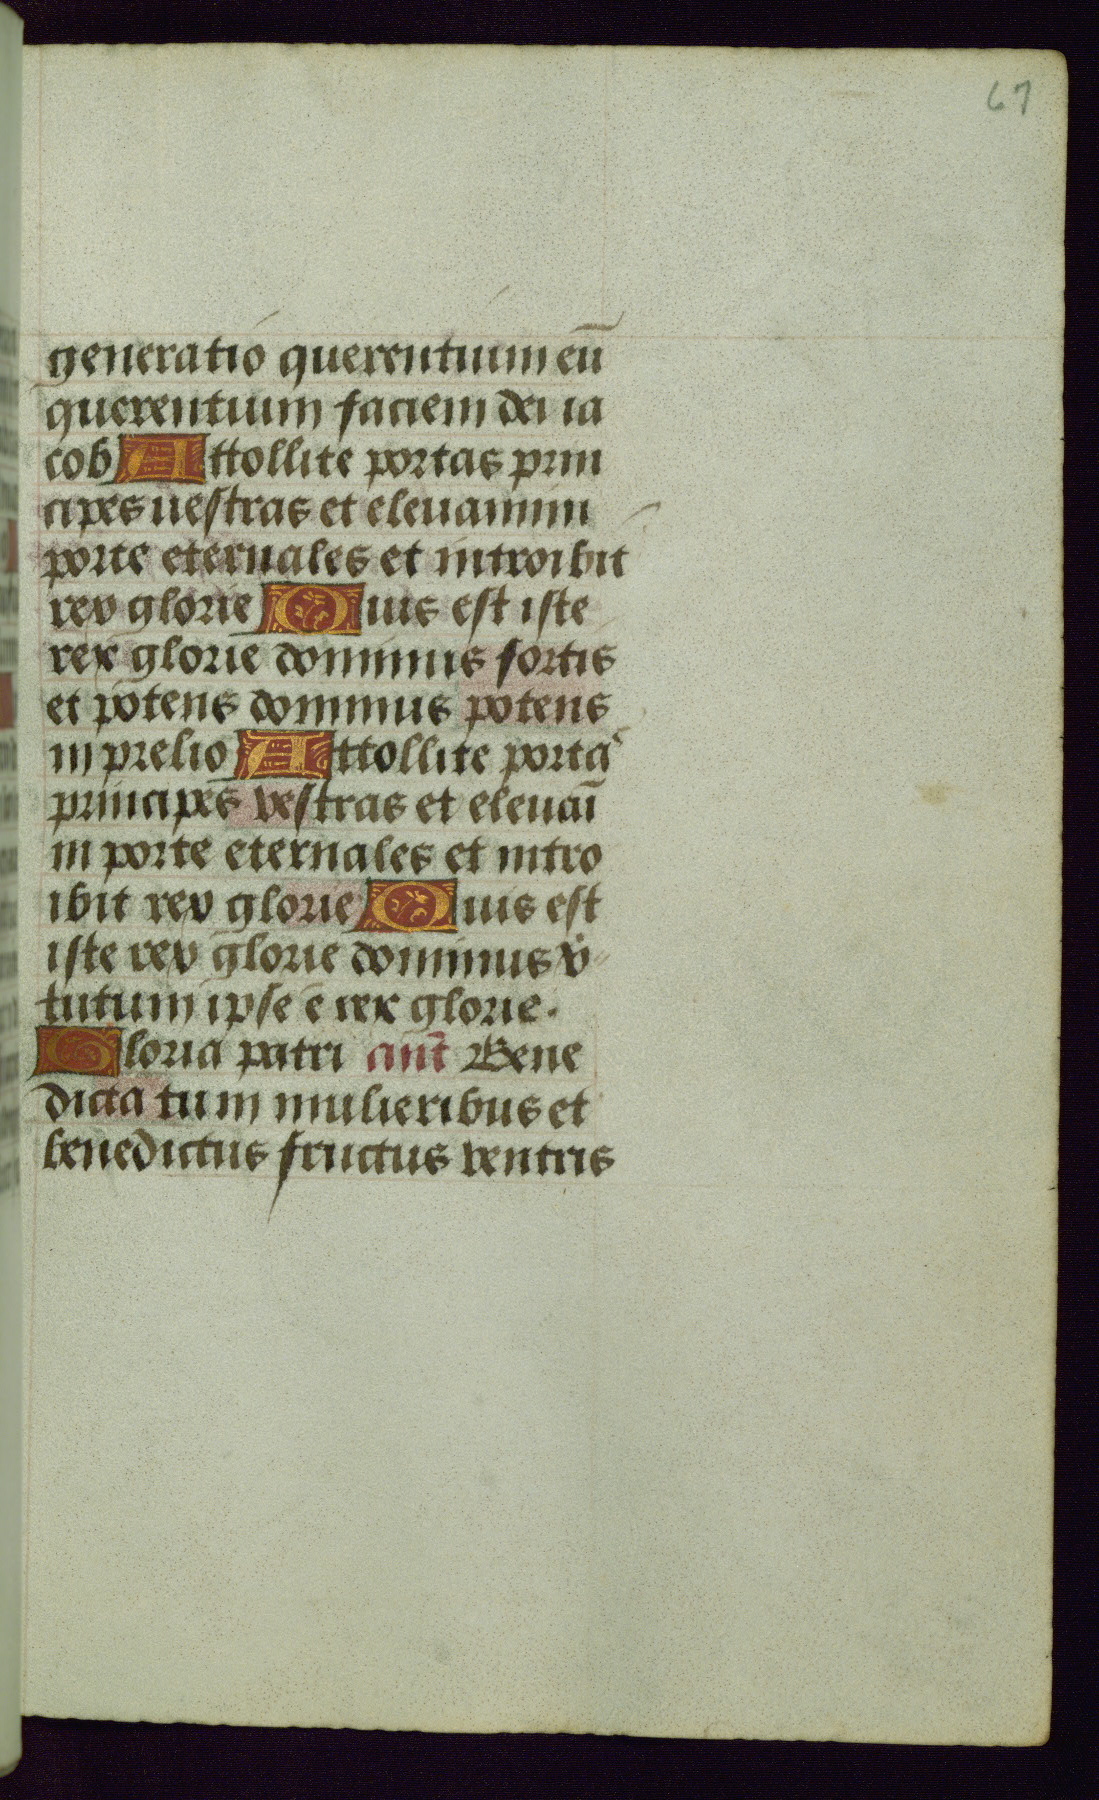 67
generatio querentium eū
querentium faciem dei ia
cob Attollite portas prin
cipes uestras et eleuamini
porte eternales et introibit
rex glorie Quis est iste
rex glorie dominus fortis
et potens dominus potens
in prelio Attollite portas
principes vestras et eleuaī
ni porte eternales et intro
ibit rex glorie Quis est
iste rex glorie dominus v̇
tutum ipse ē rex glorie.
Gloria patri anͭ Bene
dicta tu in mulieribus et
benedictus fructus ventris